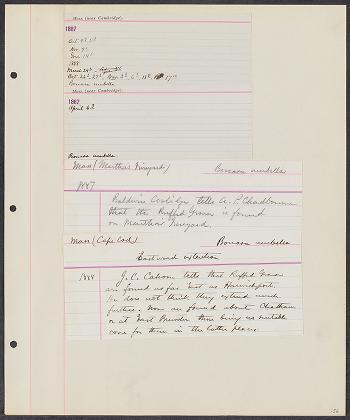 Mass (near Cambridge).
1887
Oct. 
Nov. 9th
Dec. 14th
1888
March 24th
Oct. 22d, 27th, Nov. 3d, 6th, 18th, 17th
Bonasa umbella
Mass. (near Cambridge).
1892
April 6th
Bonasa umbella
Mass (Martha's Vineyard)
Bonasa umbella
1887
Baldwin Coolidge tells A. P. Chadbourne
that the Ruffed Grouse is found
on Martha's Vineyard.
Mass (Cape Cod)
Bonasa umbella
Eastward extension
1888
J. C. Cahoon tells that Ruffed Grouse
are found as far East as Harwichport.
He does not think they extend much
further. None are found about Chatham
or at East Brewster there being no suitable
cover for them in the latter place.
156